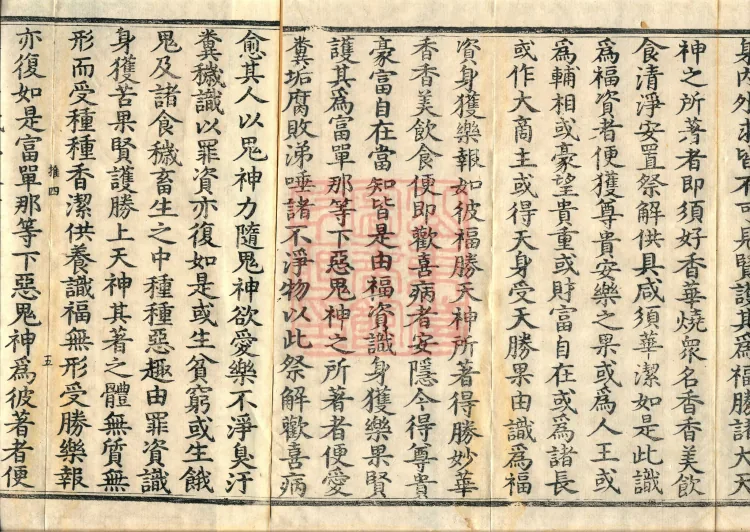 身內外
神之所著者即須好香華燒衆名香香美飲
食清淨安置祭解供具咸須華潔如是此識
為福資者便獲尊貴安樂之果或為人王或
為輔相或豪望貴重或財富自在或為諸長
或作大商主或得天身受天勝果由識為福
資身獲樂報如彼福勝天神所著得勝妙華
香香美飲食便即歡喜病者安隱今得尊貴
豪富自在當知皆是由福資識身獲樂果賢
護其為富單那等下惡鬼神之所著者便愛
糞垢腐敗涕唾諸不淨物以此祭解歡喜病
愈其人以鬼神力隨鬼神欲愛樂不淨臭汙
糞穢識以罪資亦復如是或生貧窮或生餓
鬼及諸食穢畜生之中種種惡趣由罪資識
身獲苦果賢護勝上天神其著之體無質無
形而受種種香潔供養識福無形受勝樂報
推四 五
亦復如是富單那等下惡鬼神為彼著者便